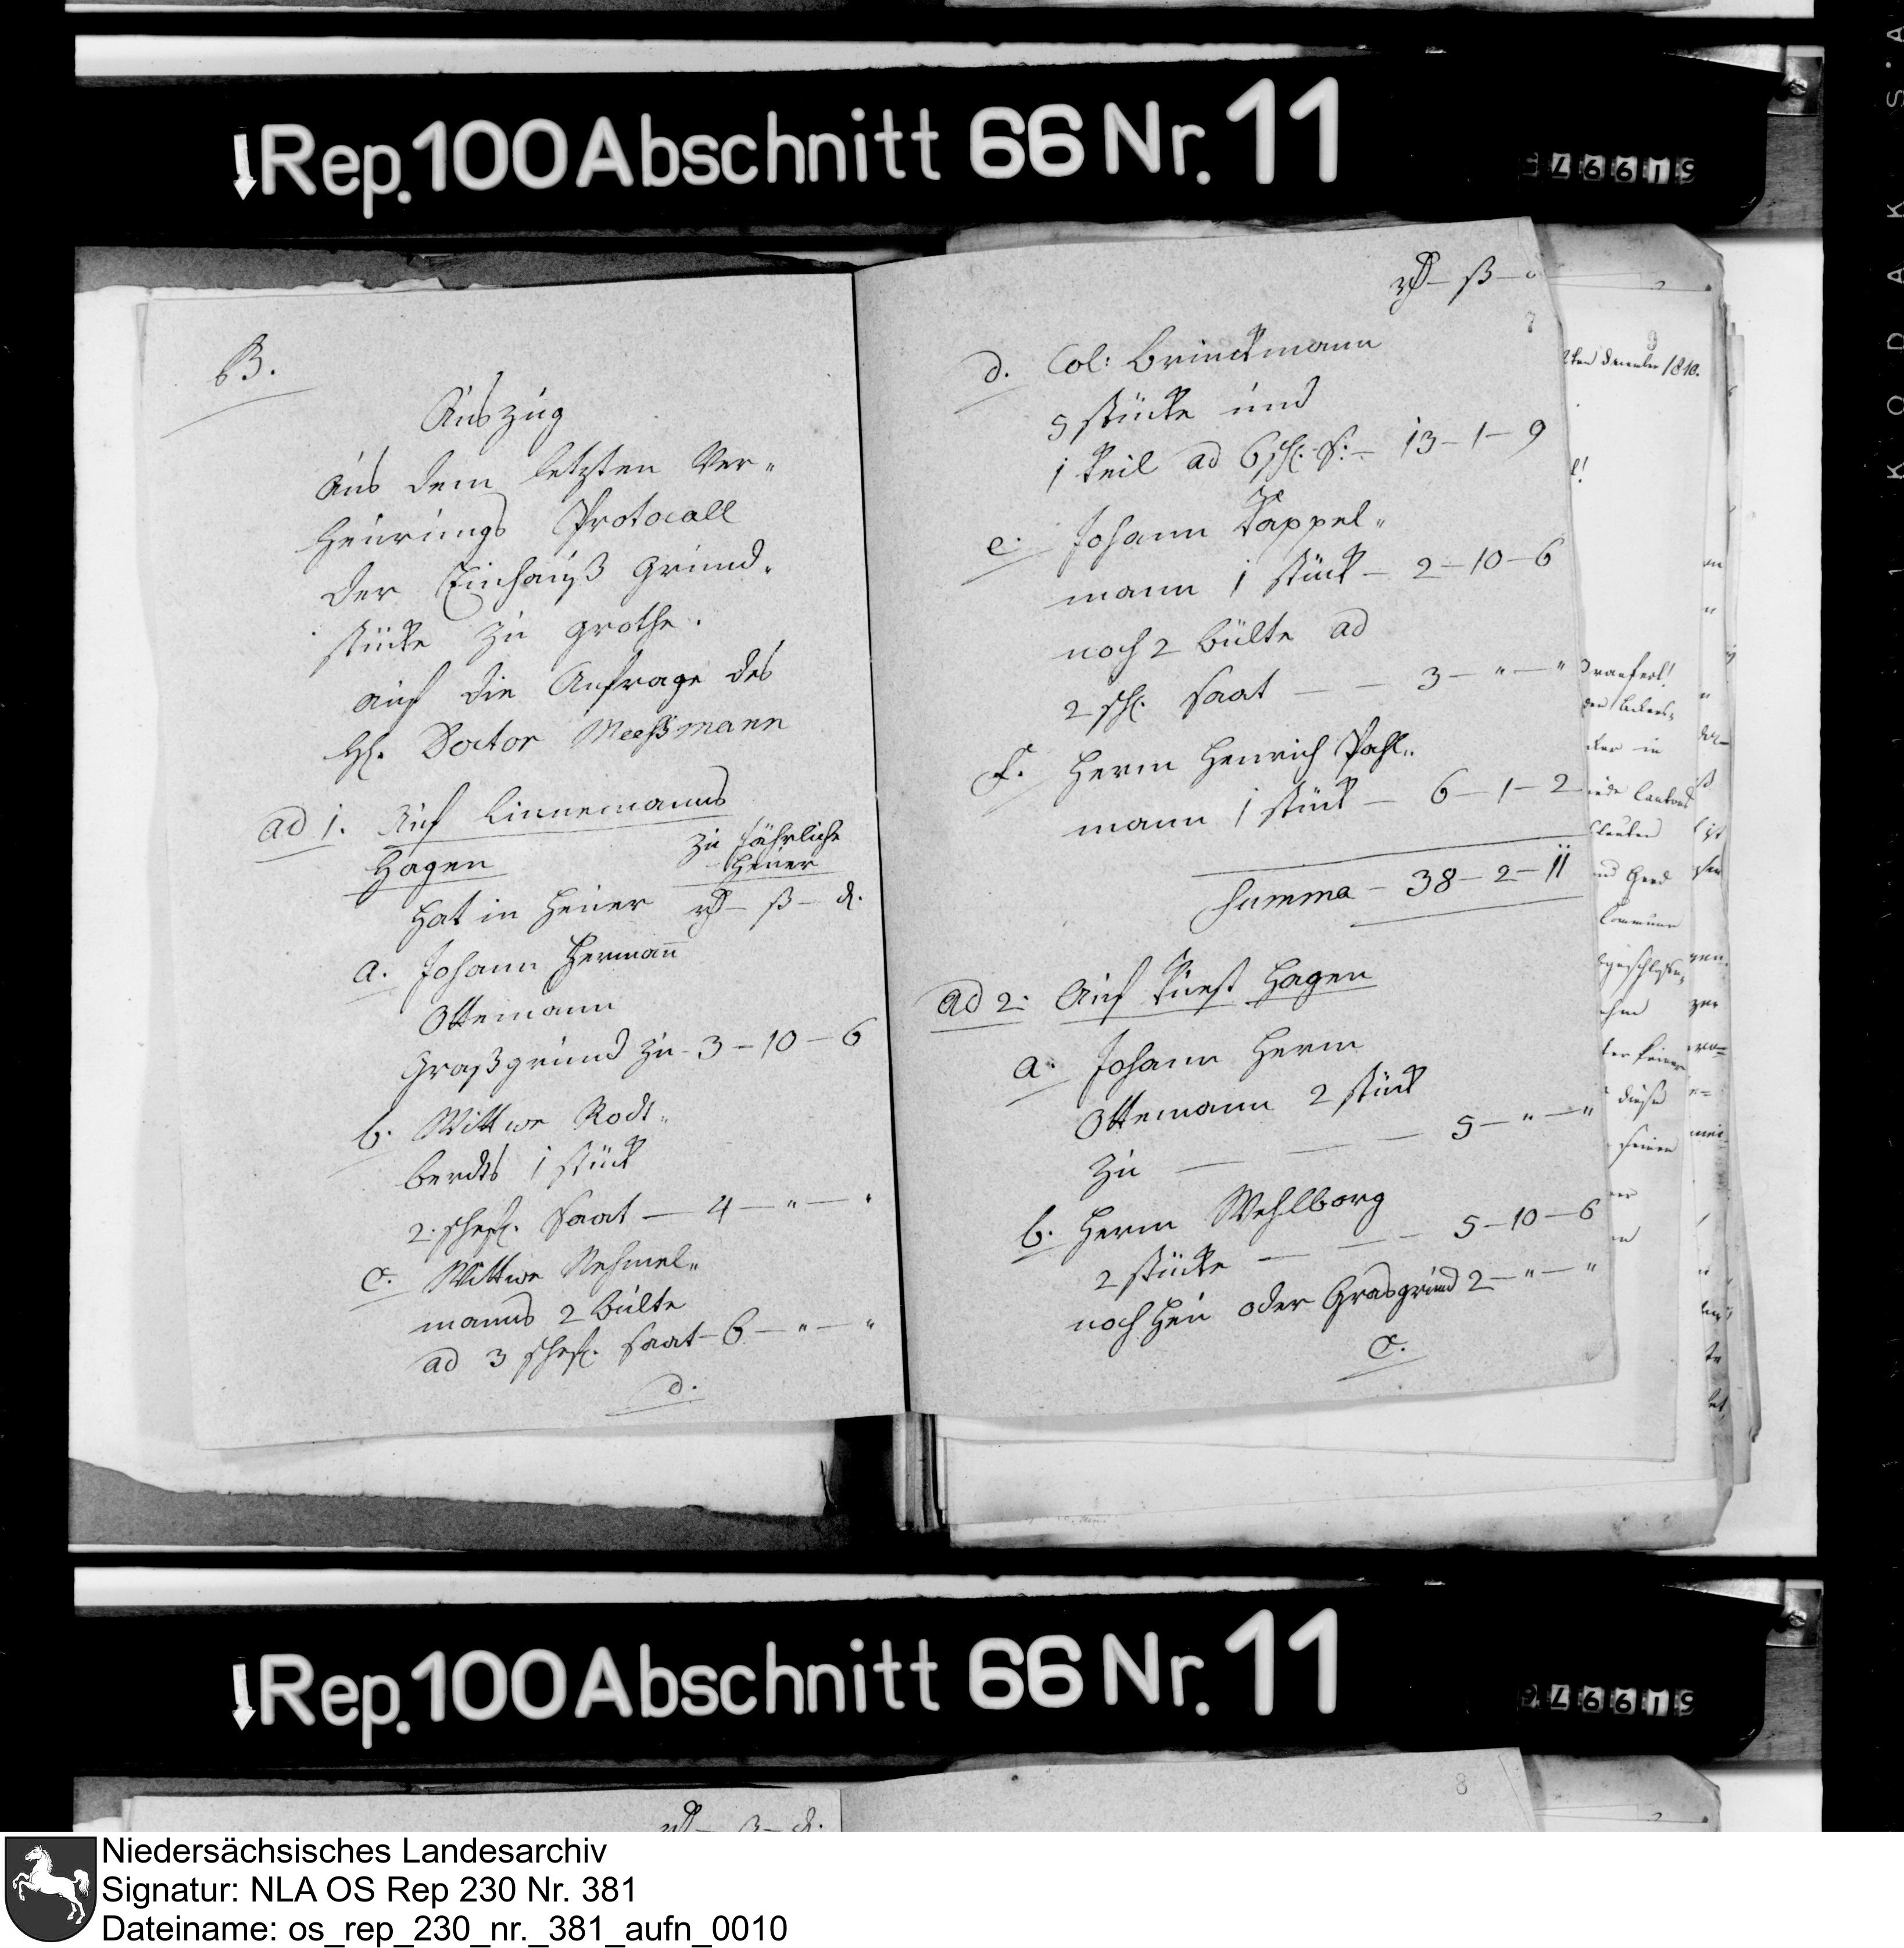 ↓Rep.100Abschnitt 66 Nr. 11
B.
Auszug
aus dem letzten Ver„
heurungs Protocoll
der Einhauß Grund„
stücke zu grothe.
auf die Anfrage des
H. Doctor Meeßmann
ad 1. Auf Linnemanns
Hagen
zu jährliche
Heuer
hat in Heuer rth – ß – d.
a. Johann Hermañ
Ottemann
Graßgrund zu – 3 – 10 – 6
b. Wittwe Rodt„
berdts 1 stück
2. schef. Saat — 4 — „ — „
c. Wittwe Nehmel„
manns 2 Bülte
ad 3 schef. Saat – 6 — „ — „
d.
rth – ß –
d. Col: Brinckmann
5 stücke und
1 Teil ad 6 sch. S: – 13 – 1 – 9
e. Johann Kappel„
mann 1 stück – 2 – 10 – 6
noch 2 Bülte ad
2 sch. Saat — — 3 – „ – „
f. Herm Henrich Pohl„
mann 1 stück – 6 – 1 – 2
Summa – 38 – 2 – 11
ad 2. Auf Hagen
a. Johann Herm
Ottemann 2 stück
zu — — — 5 – „ – „
b. Herm Wehlborg
2 stücke — — – 5 – 10 – 6
noch Heu oder Grasgrund 2 – „ – „
c.
9
2ten December 1810.
↓Rep.100Abschnitt 66 Nr. 11
8
rth – ß – d.
Niedersächsisches Landesarchiv
Signatur: NLA OS Rep 230 Nr. 381
Dateiname: os_rep_230_nr._381_aufn_0010